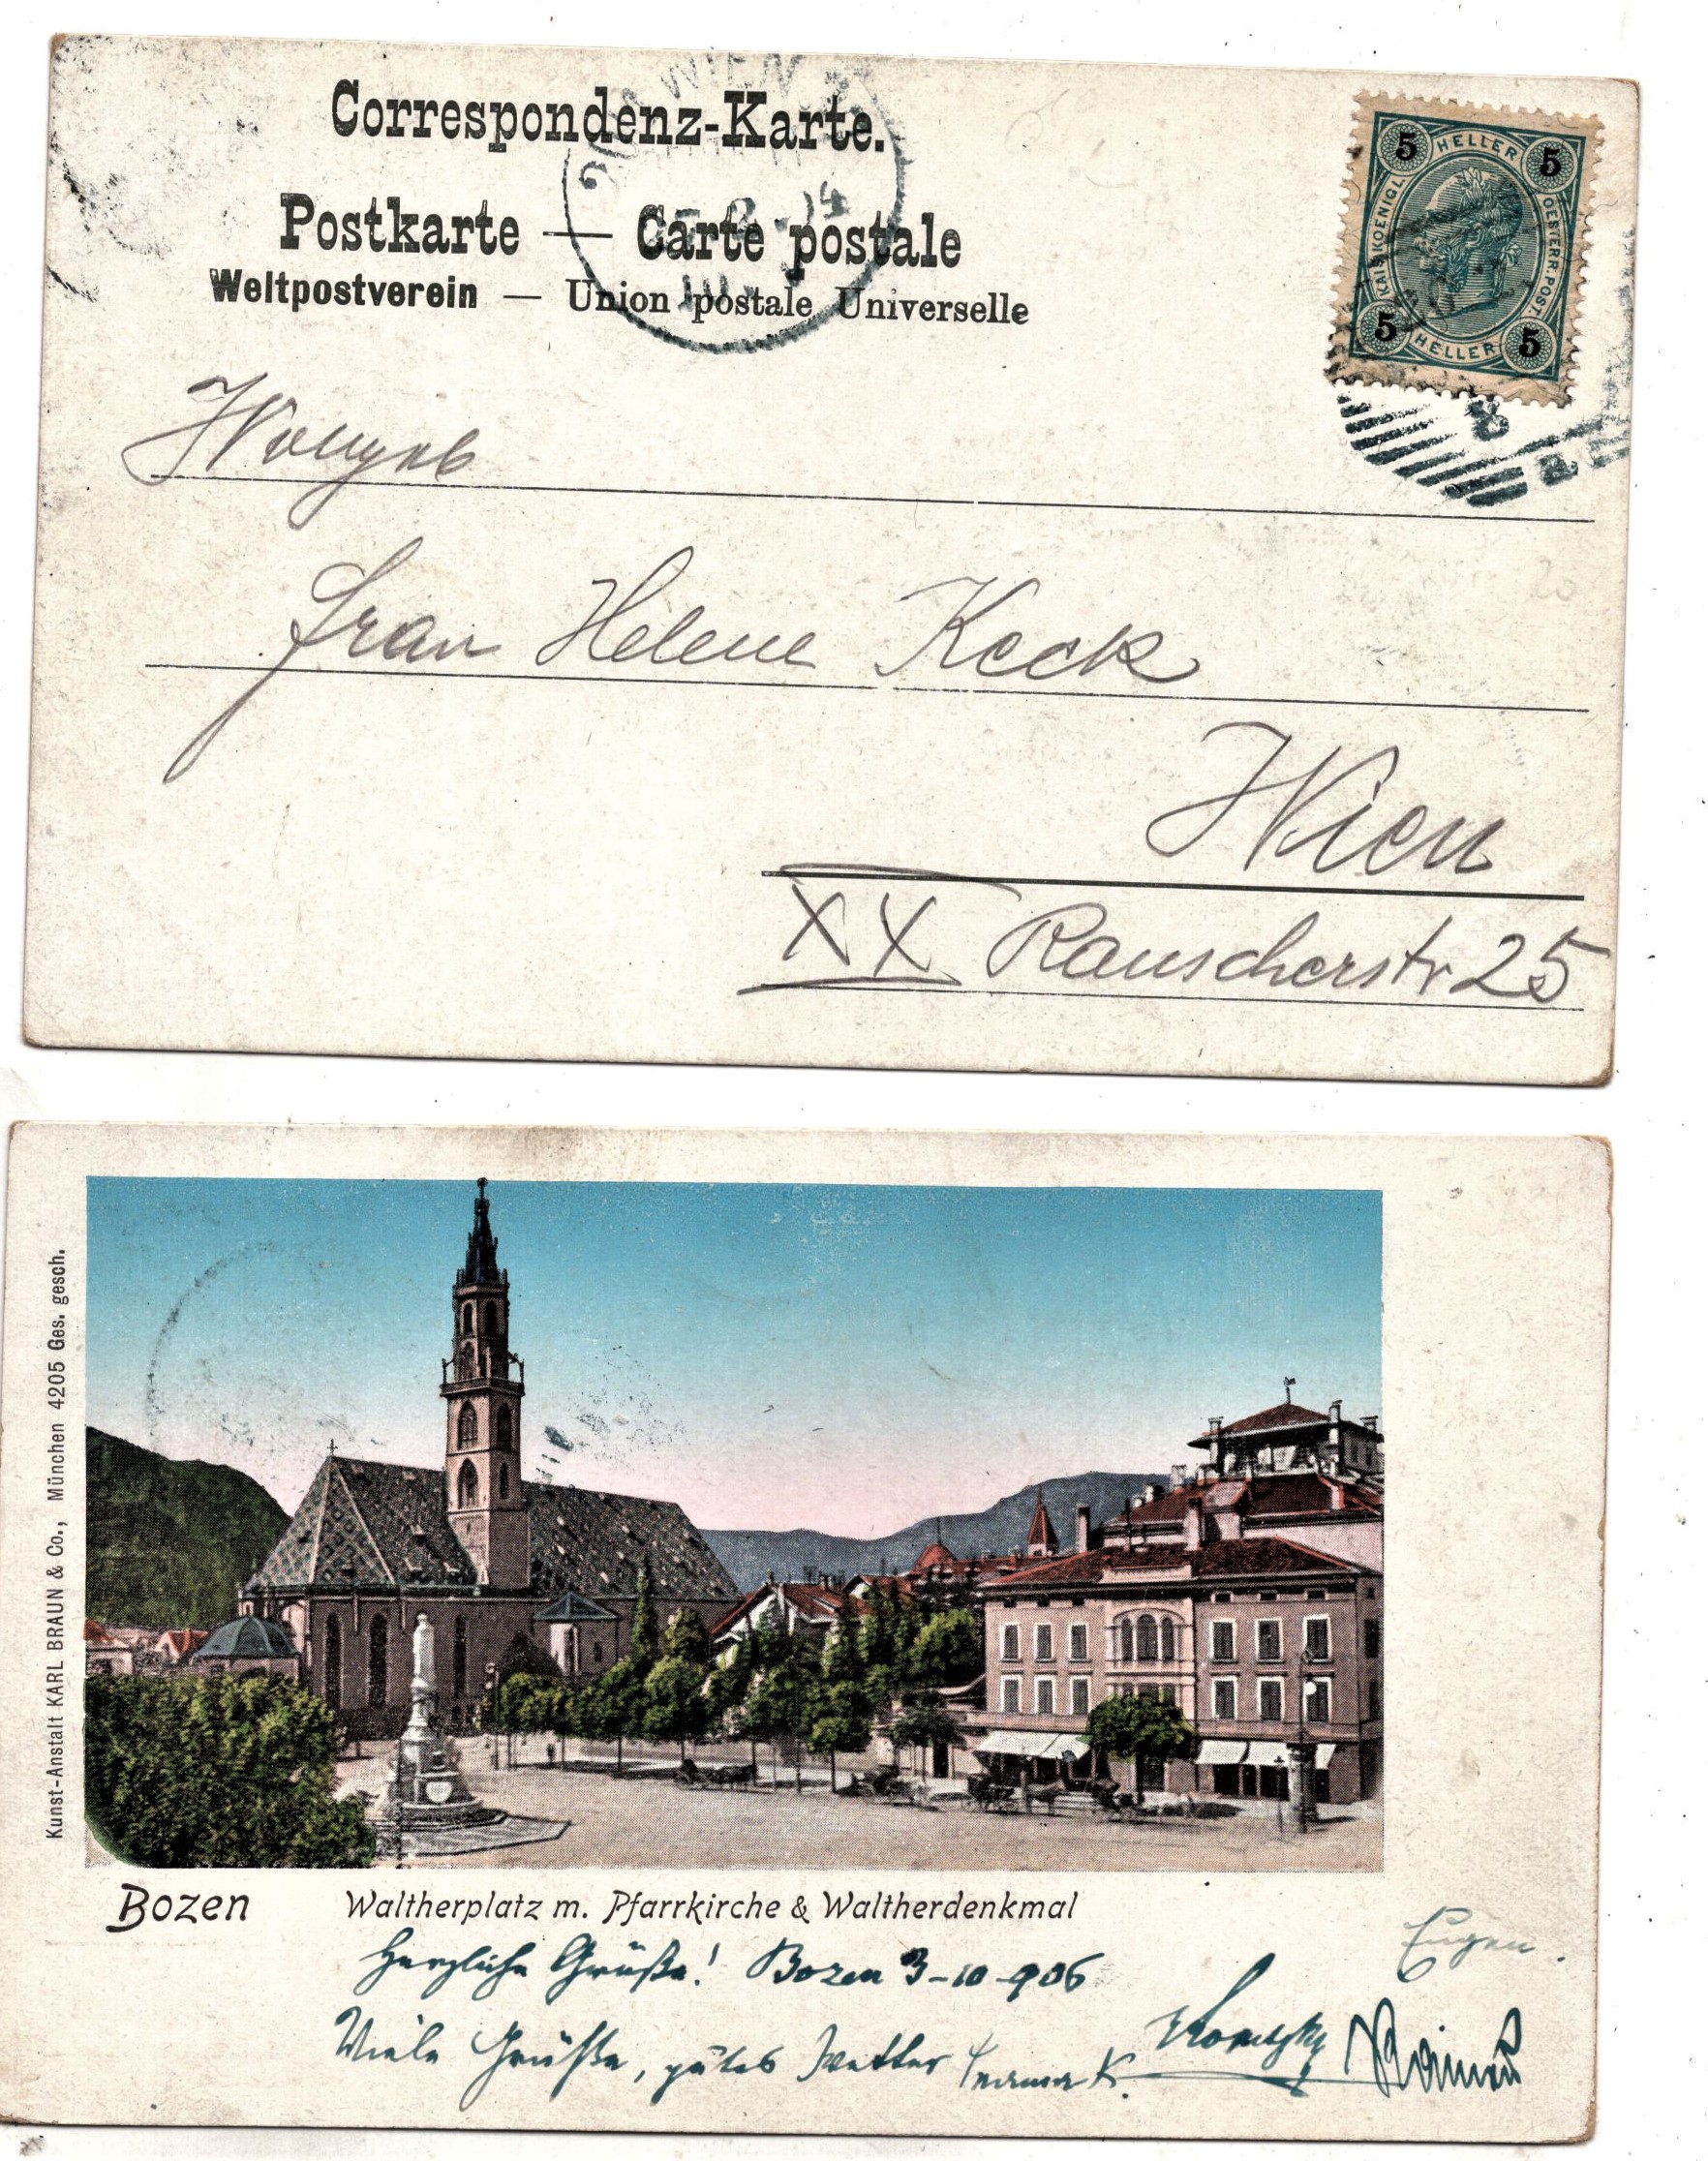 Correspondenz-Karte.
Postkarte — Carte postale
Weltpostverein — Union postale Universelle
WIEN
5 HELLER 5
KAIS. KOENIGL. OESTERR. POST.
5 HELLER 5
Frau Helene Keck
Wien
XX Rauscherstr 25
Kunst-Anstalt KARL BRAUN & Co., München 4205 Ges. gesch.
Bozen Waltherplatz m. Pfarrkirche & Waltherdenkmal
Eugen.
Herzliche Grüße! Bozen 3-10-906
Viele Grüße, gutes Wetter